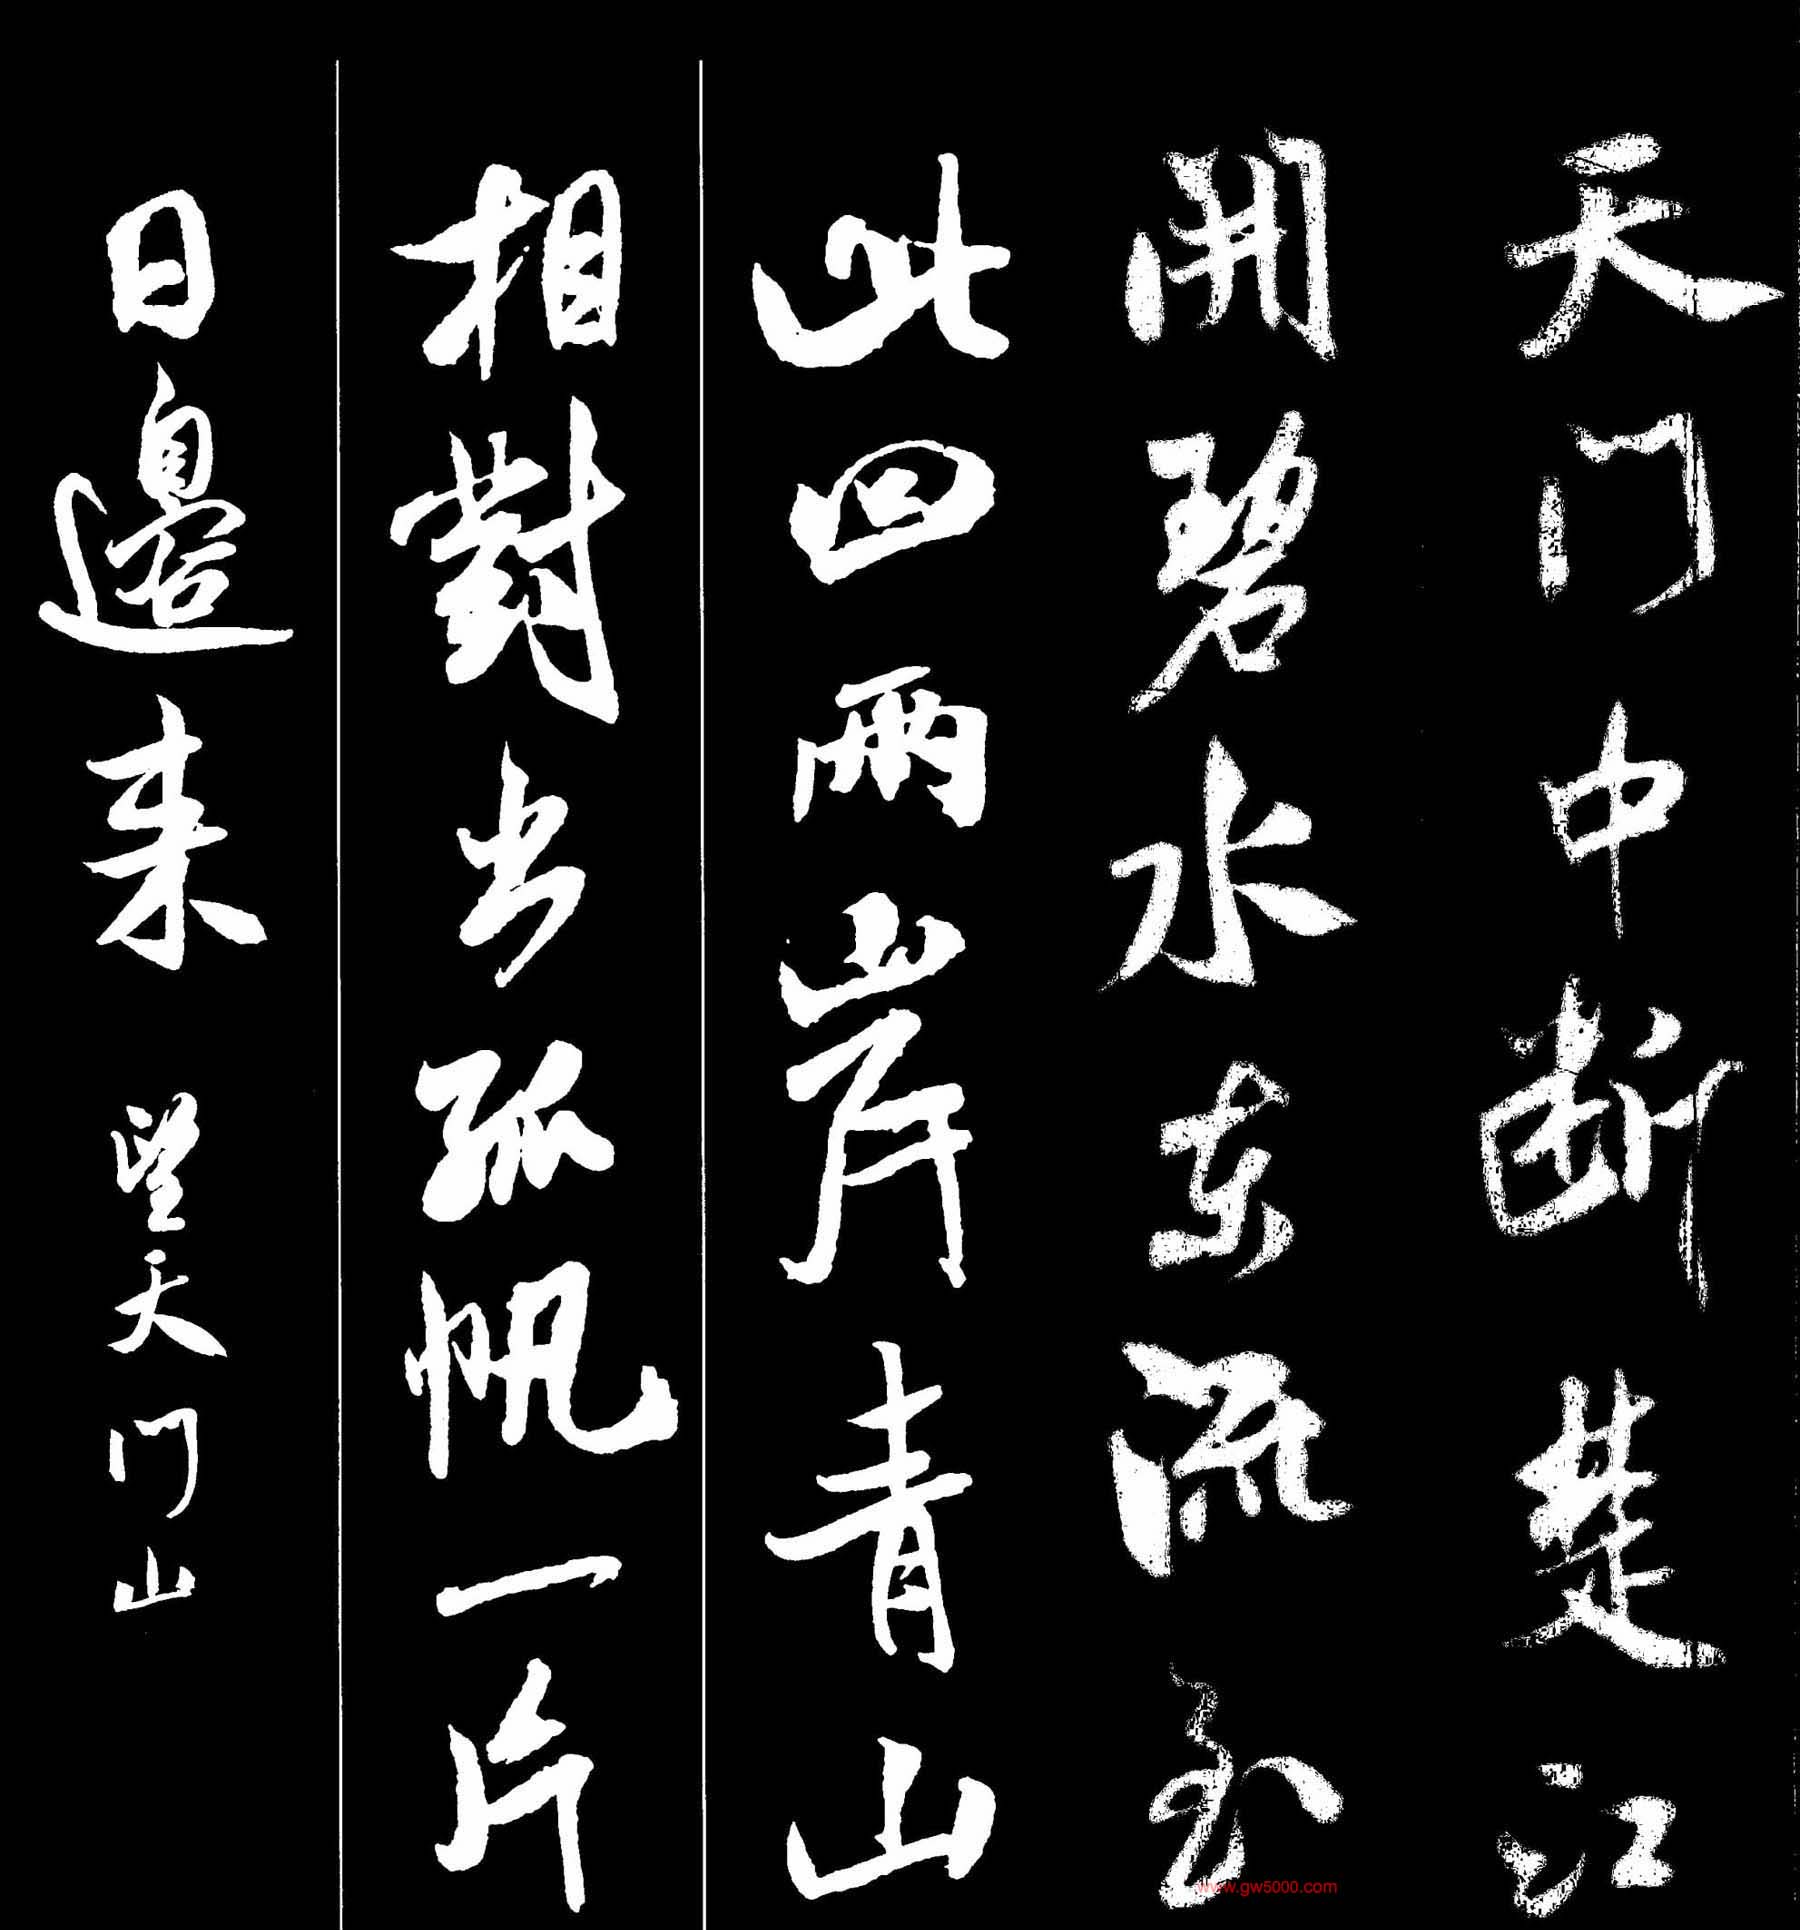 天门中断楚江
開碧水东流至
此回兩岸青山
相對出孤帆一片
日邊来 望天门山
www.gw5000.com